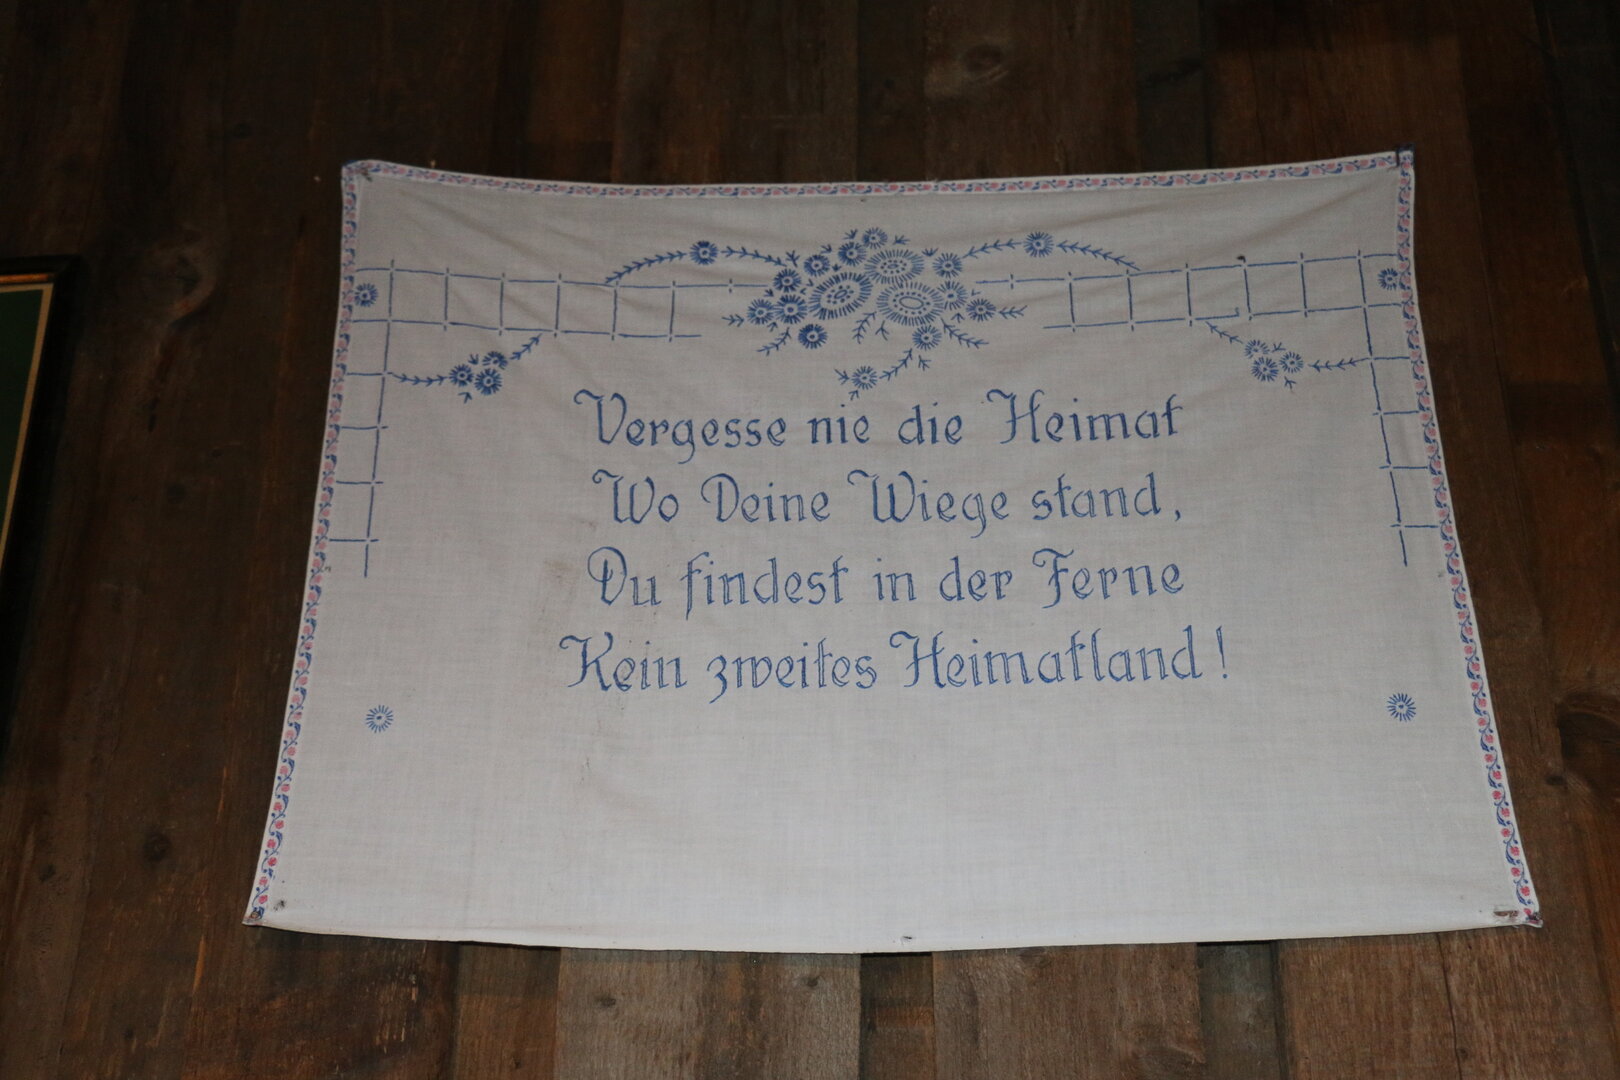 Vergesse nie die Heimat
Wo Deine Wiege stand,
Du findest in der Ferne
Kein zweites Heimatland!